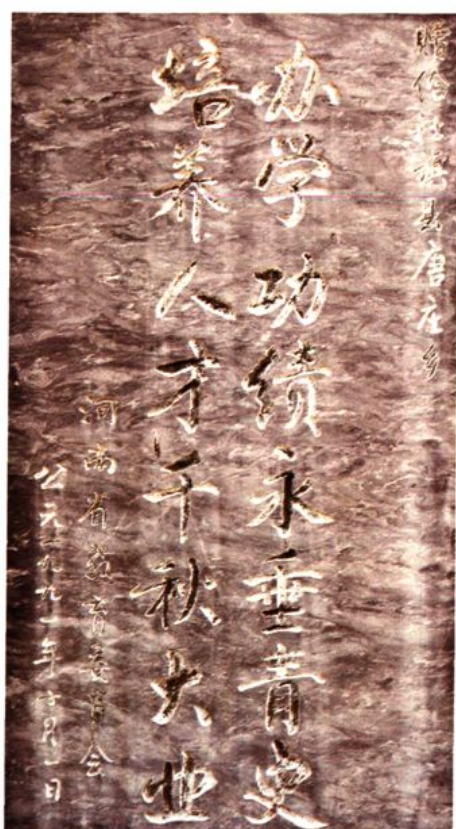 赠给县唐庄乡
办学功绩永垂青史
培养人才千秋大业
河南省教育委员会
公元一九九一年十月一日